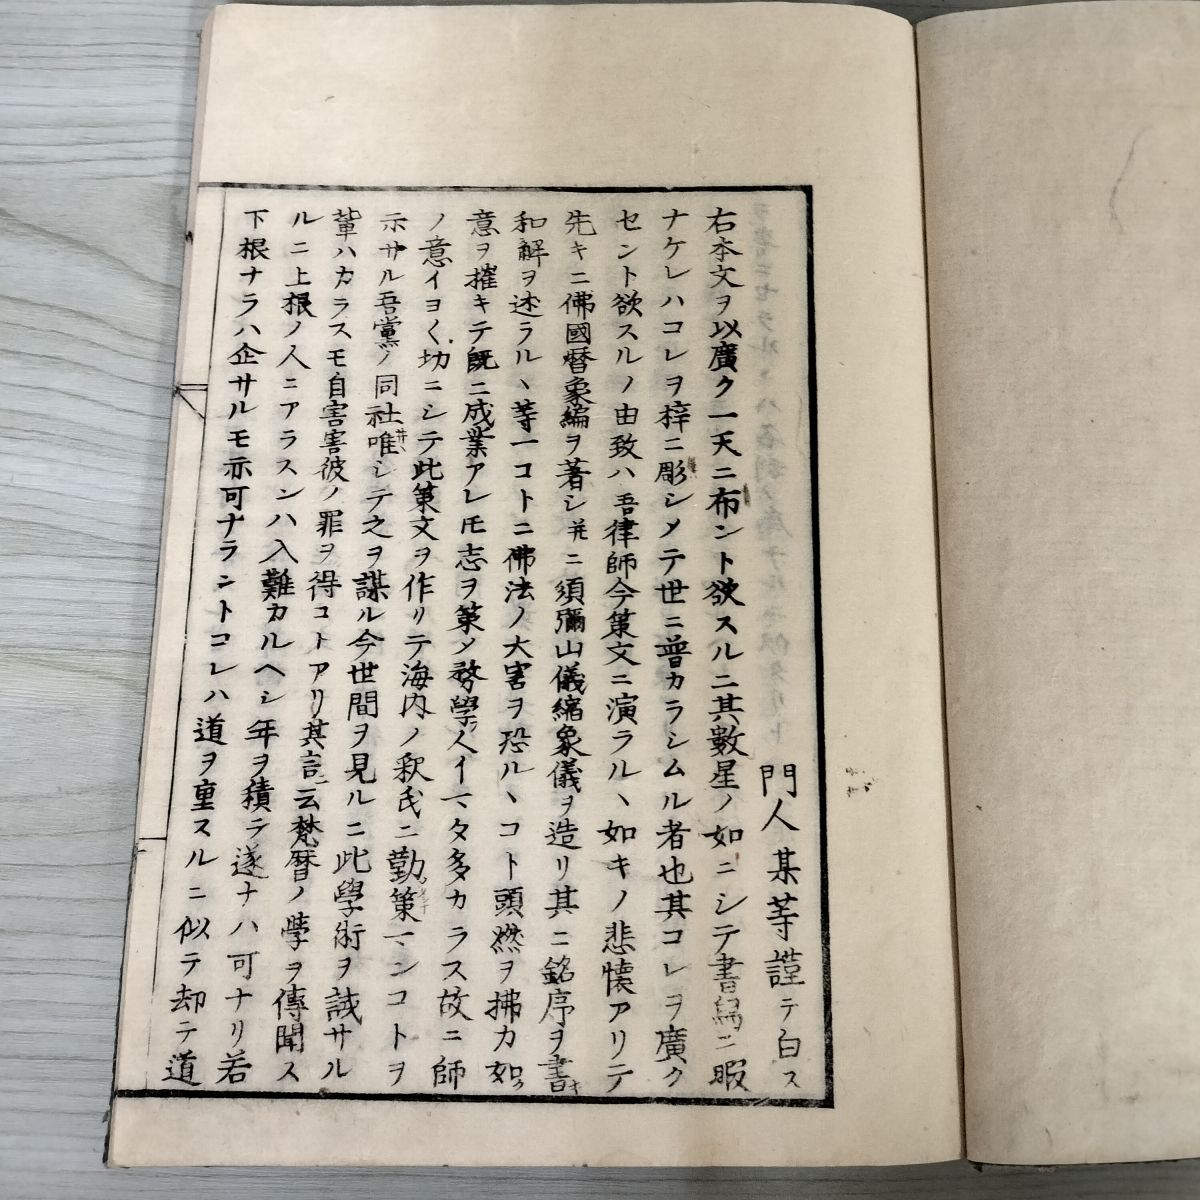 門人某等謹テ白ス
右本文ヲ以廣ク一天ニ布ント欲スルニ其數星ノ如ニシテ書編ニ暇
ナケレハコレヲ梓ニ彫シメテ世ニ普カラシムル者也其コレヲ廣ク
セント欲スルノ由致ハ吾律師今策文ニ演ラル丶如キノ悲懐アリテ
先キニ佛國暦象編ヲ著シ并ニ須彌山儀縮象儀ヲ造リ其ニ銘序ヲ書キ
和解ヲ述ラル丶等一コトニ佛法ノ大害ヲ恐ル丶コト頭燃ヲ拂カ如
意ヲ摧キテ既ニ成業アレモ志ヲ策メ務學人イマタ多カラス故ニ師
ノ意イヨ〱切ニシテ此策文ヲ作リテ海内ノ釈氏ニ勤策センコトヲ
示サル吾黨ノ同社唯シテ之ヲ謀ル今世間ヲ見ルニ此學術ヲ誠サル
輩ハカラスモ自害害彼ノ罪ヲ得コトアリ其言云梵暦ノ學ヲ傳聞ス
ルニ上根ノ人ニアラスンハ入難カルヘシ年ヲ積テ遂ナハ可ナリ若
下根ナラハ企サルモ亦可ナラントコレハ道ヲ重スルニ似テ却テ道